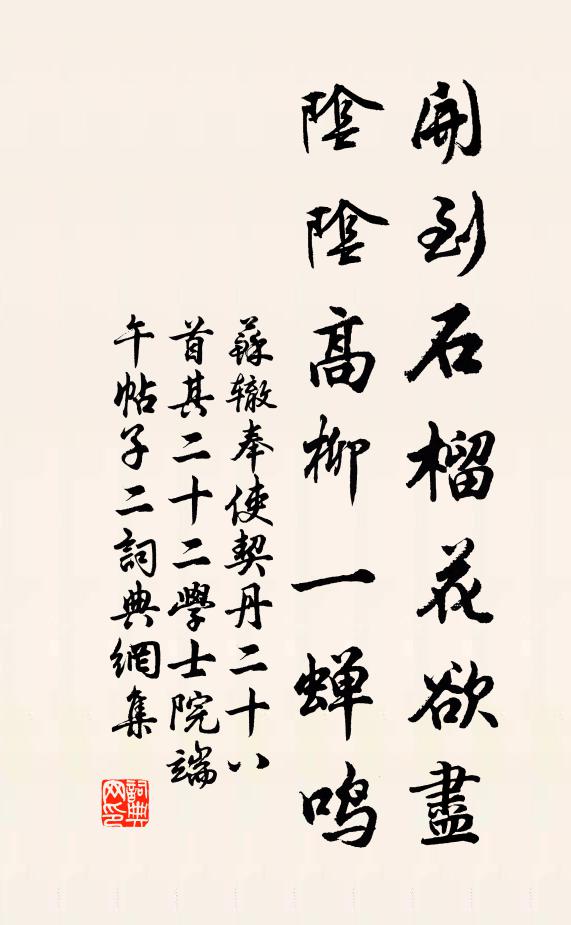 開到石榴花欲盡
陰陰高柳一蝉鸣
蘇辙奉使契丹二十八
首其二十二學士院端
午帖子二詞典網集
詞典
网印